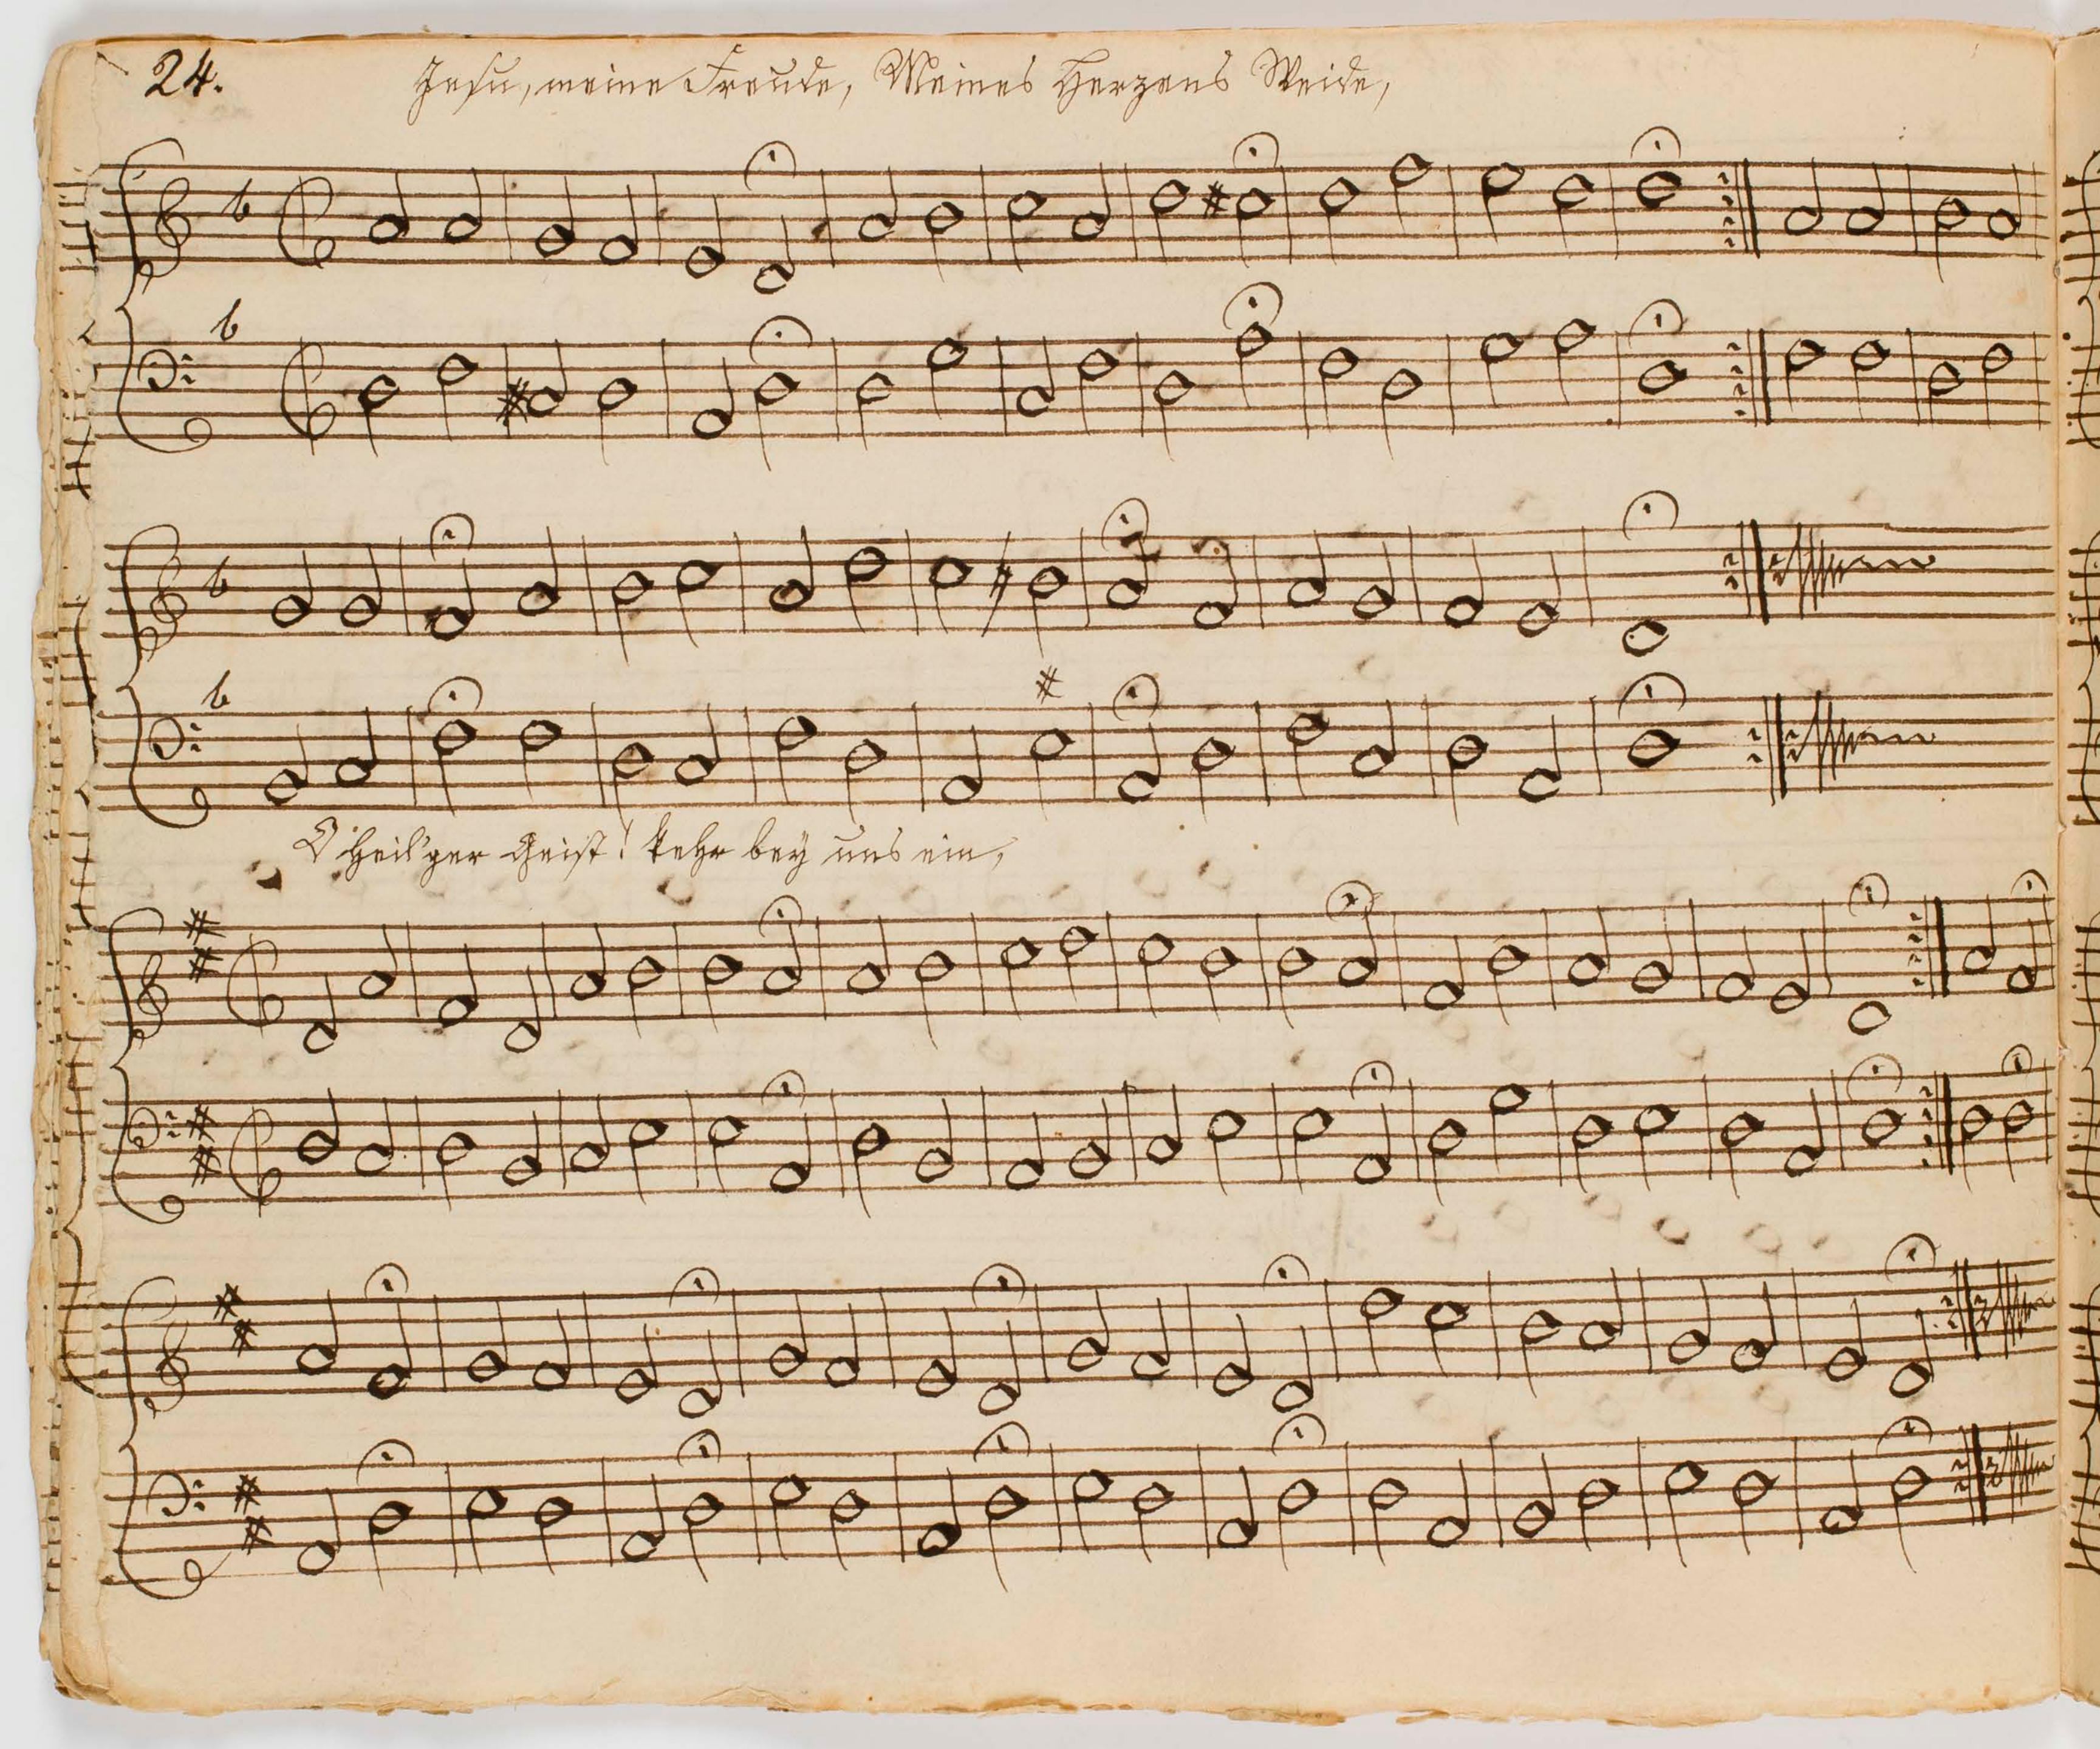 24.
Jesu, meine Freude, Meines Herzens Weide,
O Heil'ger Geist! kehr bey uns ein,